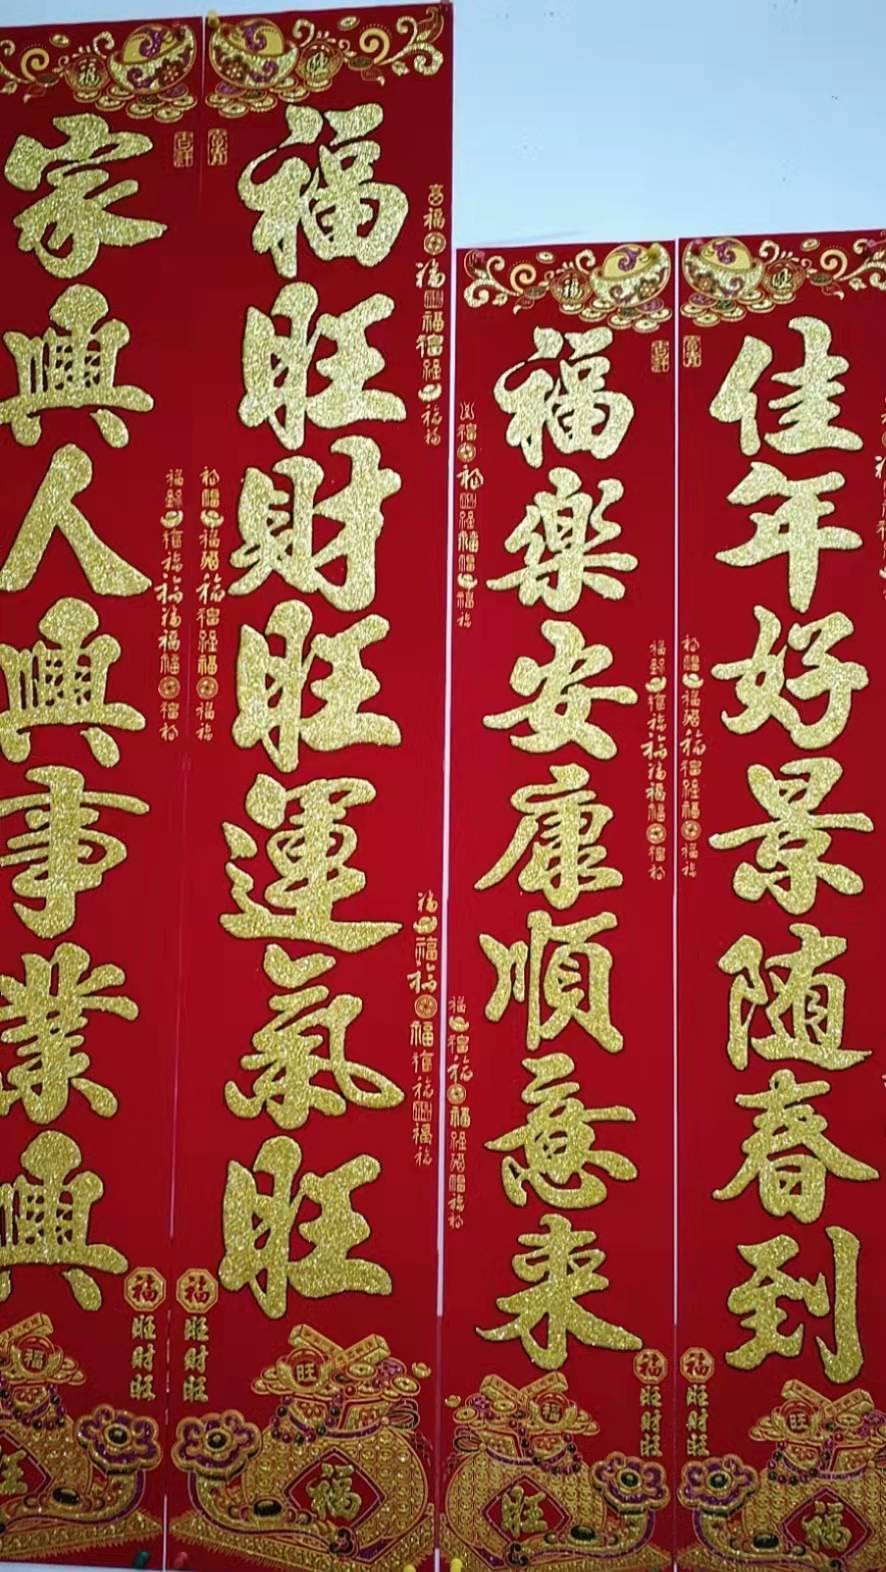 佳年好景随春到
福樂安康順意来
福旺財旺運氣旺
家興人興事業興
福
旺財旺
福
旺財旺
福
旺財旺
福
旺財旺
福
旺
福
旺